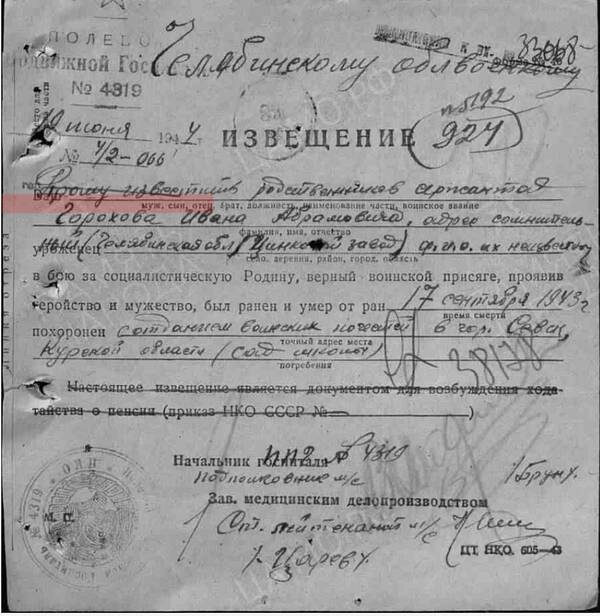 ПОЛЕВО
ПОДВИЖНОЙ Госп
№ 4319
Челябинскому облвоенкому
к вх. 83068
19 июня 1944 г.
№ 4/2-066
ИЗВЕЩЕНИЕ
п5192
924
Прошу известить родственников сержанта
муж, сын, отец, брат, должность, наименование части, воинское звание
Горохова Ивана Абрамовича, адрес сомнитель-
фамилия, имя, отчество
ный (Челябинская обл Цинковый завод) ф.и.о. их неизвестно
уроженец
село, деревня, район, город, область
в бою за социалистическую Родину, верный воинской присяге, проявив
геройство и мужество, был ранен и умер от ран 17 сентября 1943 г
время смерти
похоронен с отданием воинских почестей в гор. Севск,
точный адрес места
Курской области (сад школы)
погребения
38178
Настоящее извещение является документом для возбуждения хода-
тайства о пенсии (приказ НКО СССР № )
Начальник госпиталя ППГ № 4319
Подполковник м/с
Зав. медицинским делопроизводством
Ст. лейтенант м/с
М. П.
№ 4319
ЦТ НКО. 605—43
линия отреза